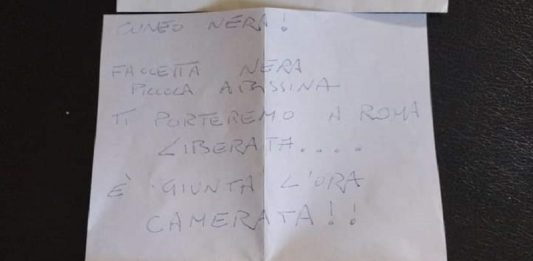 CUNEO NERA!
FACCETTA NERA
PICCOLA ABISSINA
TI PORTEREMO A ROMA
LIBERATA....
È GIUNTA L'ORA
CAMERATA!!